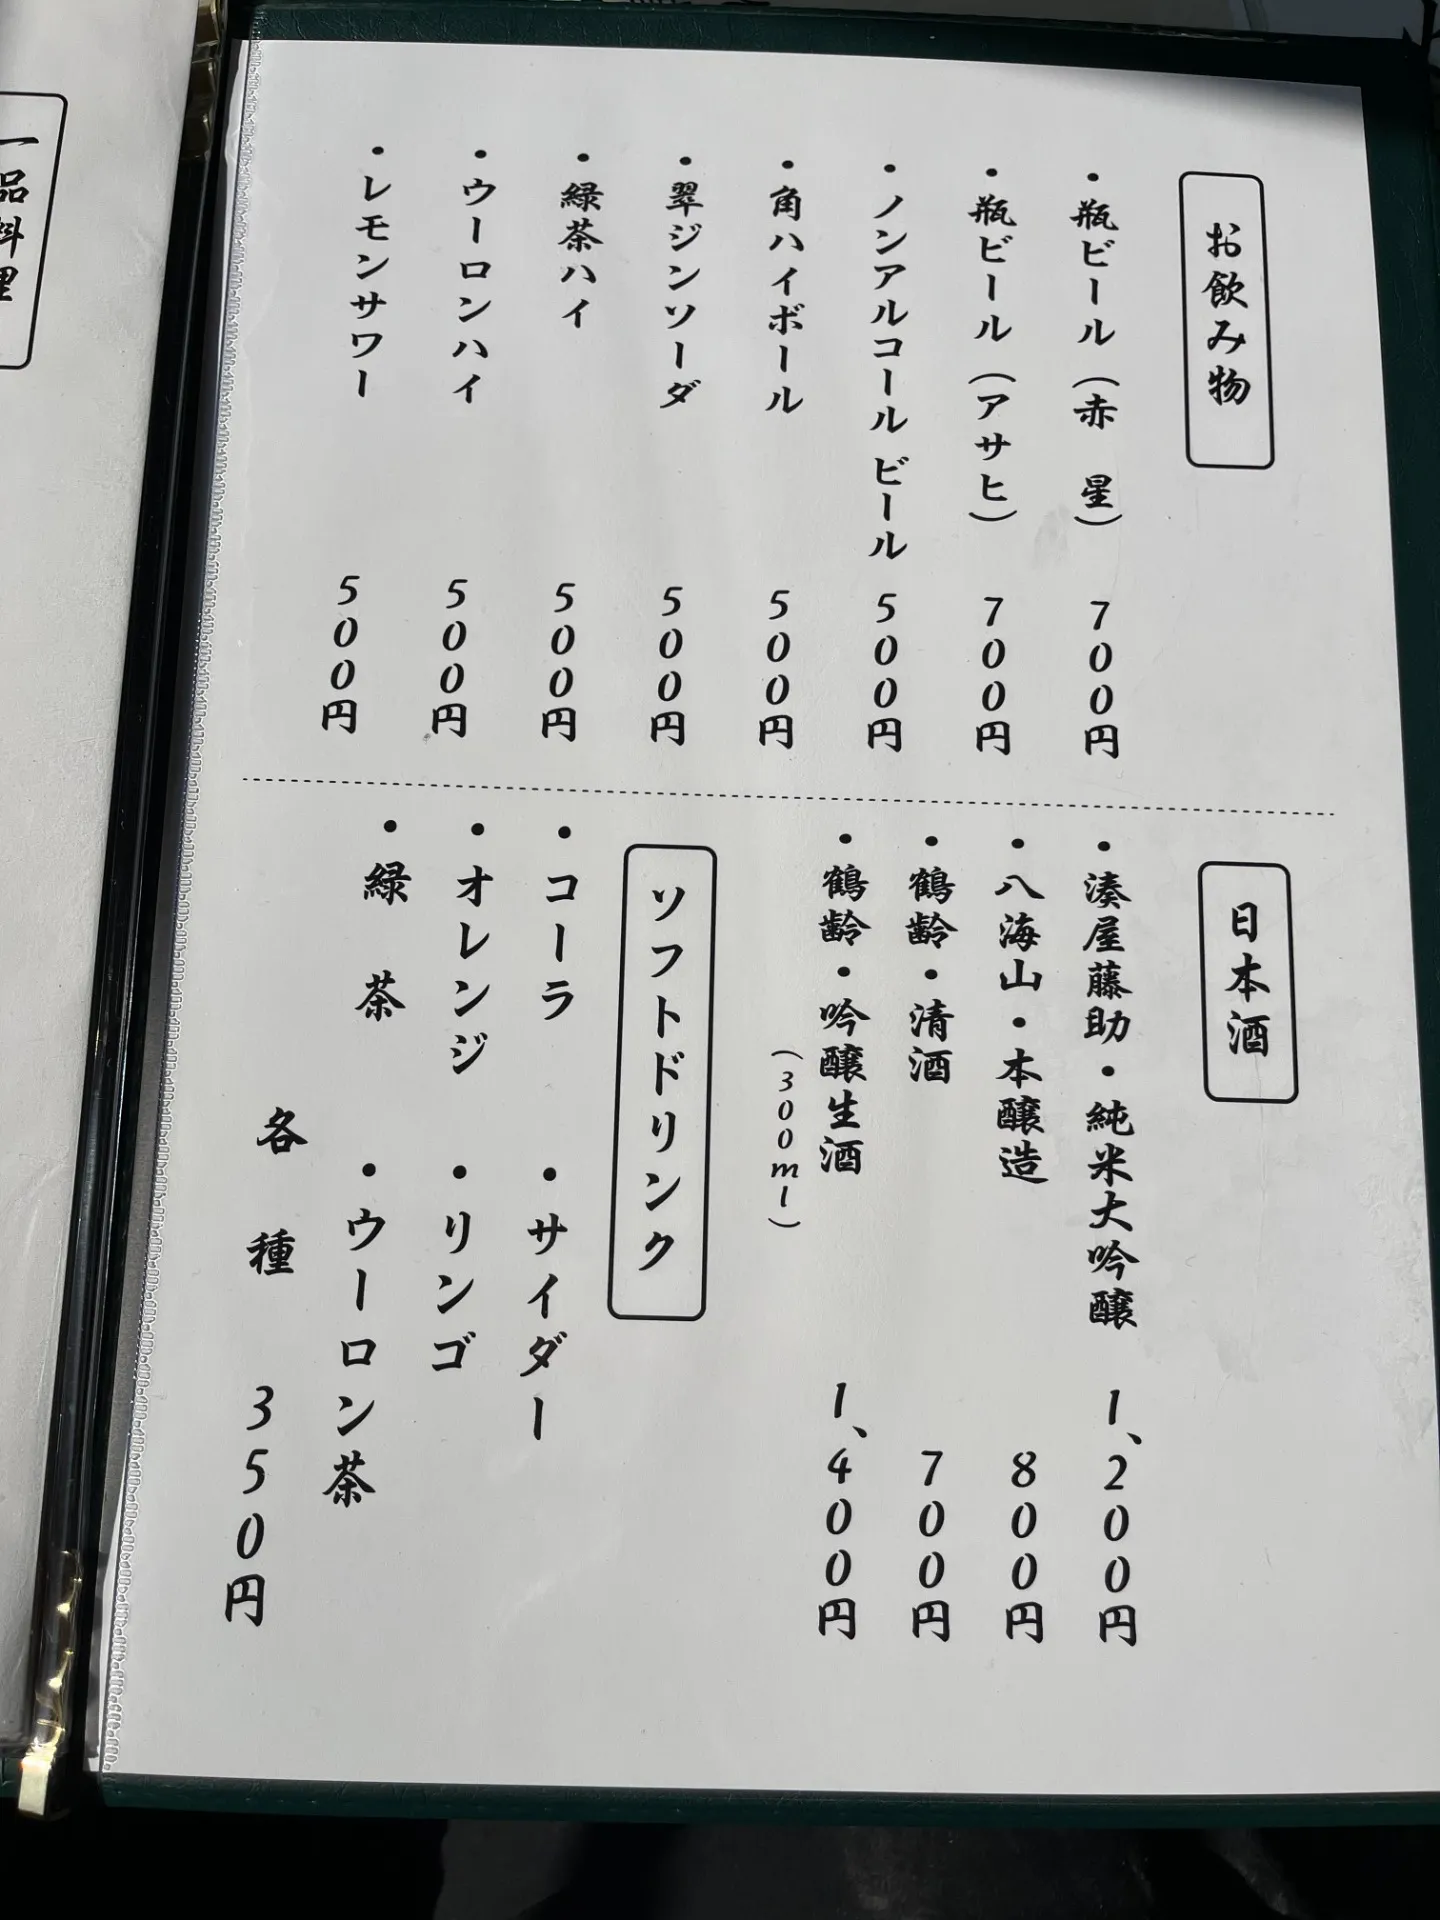 お飲み物
・瓶ビール（赤　星）　700円
・瓶ビール（アサヒ）　700円
・ノンアルコールビール　500円
・角ハイボール　500円
・翠ジンソーダ　500円
・緑茶ハイ　500円
・ウーロンハイ　500円
・レモンサワー　500円
日本酒
・湊屋藤助・純米大吟醸　1、200円
・八海山・本醸造　800円
・鶴齢・清酒　700円
・鶴齢・吟醸生酒　1、400円
（300ml）
ソフトドリンク
・コーラ　・サイダー
・オレンジ　・リンゴ
・緑　茶　・ウーロン茶
各　種　350円
一品料理